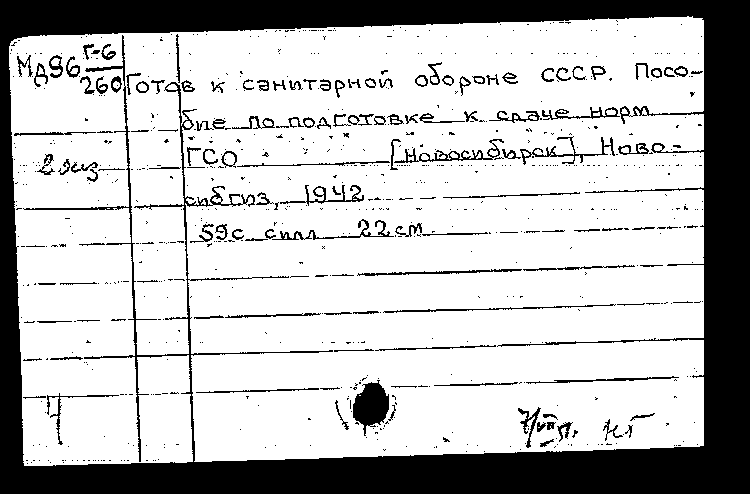 МД96 Г-6/260 Готов к санитарной обороне СССР. Посо-
бие по подготовке к сдаче норм
2 экз ГСО [Новосибирск], Ново-
сибгиз, 1942
59с с илл 22см
Ч
7/VIII 51. НГ